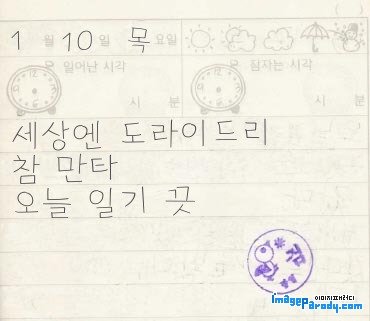 1 월 10 일 목 요일
일어난 시각 잠자는 시각
시 분 시 분
세상엔 도라이드리
참 만타
오늘 일기 끗
이미지패러디
imageParody.com